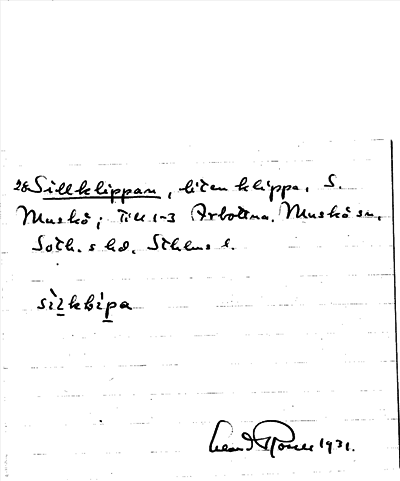 28 Sillklippan, liten klippa, S.
Muskö; Till 1-3 Arbottna, Muskö sn,
Soth.s hd, Sthlms l.
sìlklípa
1931.